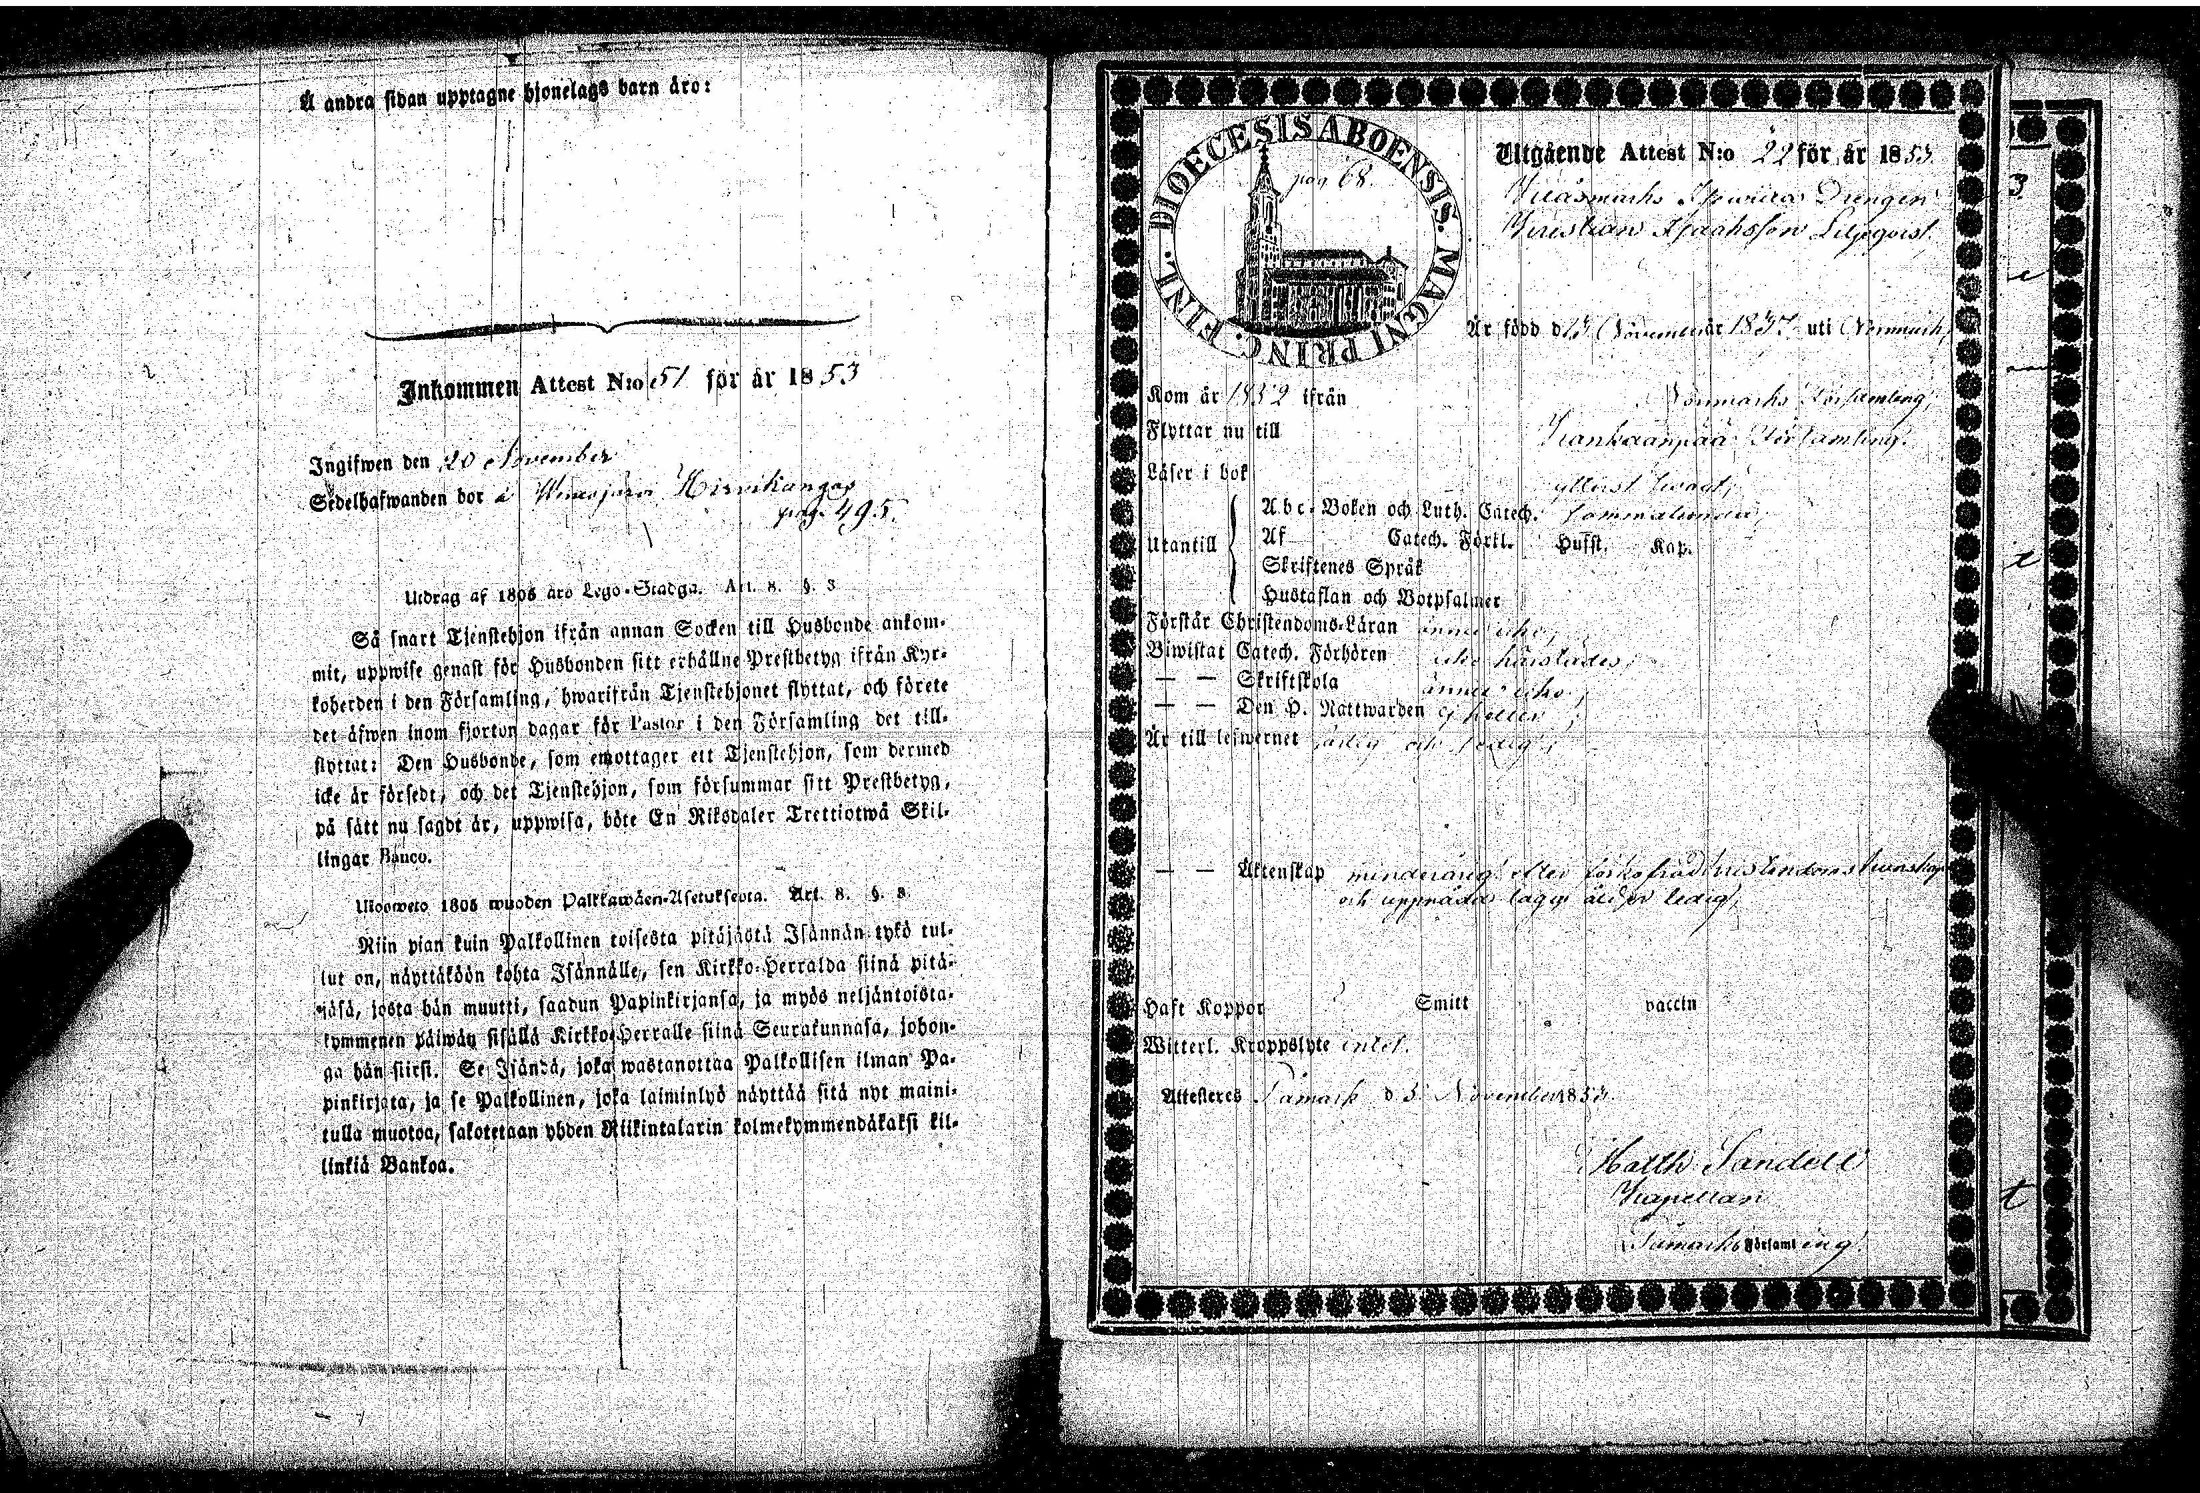 Å andra sidan upptagne hjonelags barn äro:
Inkommen Attest N:o 51 för år 1853
Ingifwen den 20 November
Sedelhafwanden bor å Hirvikangas
pag. 495.
Utdrag af 1805 års Lego-Stadga. Art. 8. §. 3
Så snart Tjenstehjon ifrån annan Socken till Husbonde ankom-
mit, uppwise genast för Husbonden sitt erhållne Prestbetyg ifrån Kyr-
koherden i den Församling, hwarifrån Tjenstehjonet flyttat, och förete
det äfwen inom fjorton dagar för Pastor i den Församling det till-
flyttat: Den Husbonde, som emottager ett Tjenstehjon, som dermed
icke är försedt, och det Tjenstehjon, som försummar sitt Prestbetyg,
på sätt nu sagdt är, uppwisa, böte En Riksdaler Trettiotwå Skil-
lingar Banco.
Ulosweto 1805 wuoden Palkkawäen-Asetuksesta. Art. 8. §. 3
Niin pian kuin Palkollinen toisesta pitäjästä Isännän tykö tul-
lut on, näyttäköön kohta Isännälle, sen Kirkko-Herralda siinä pitä-
jäsä, josta hän muutti, saadun Papinkirjansa, ja myös neljäntoista-
kymmenen päiwän sisällä Kirkko-Herralle siinä Seurakunnasa, johon-
ga hän siirsi. Se Isändä, joka wastanottaa Palkollisen ilman Pa-
pinkirjata, ja se Palkollinen, joka laiminlyö näyttää sitä nyt maini-
tulla muotoa, sakotetaan yhden Riikintalarin kolmekymmendäkaksi kil-
linkiä Bankoa.
DIOECESIS ABOENSIS. MAGNI PRINC. FINL.
pag 68.
Utgående Attest N:o 22 för år 1853
Drengen
Kristian Isaksson Liljeqvist,
Är född d. 15 November år 1837 uti Norrmark,
Kom år 1852 ifrån Norrmarks Församling,
Flyttar nu till Kankaanpää Församling.
Läser i bok ytterst svagt,
Utantill
Abc-Boken och Luth. Catech.
Af Catech. Förkl. Hufst. Kap.
Skriftenes Språk
Hustaflan och Botpsalmer
Förstår Christendoms-Läran ännu icke,
Biwistat Catech. Förhören icke härstädes,
— — Skriftskola ännu icke,
— — Den H. Nattwarden ej heller,
Är till lefwernet ärlig och
— — Äktenskap minderårig efter förkofrad Kristendoms kunskap
och uppnådd laga ålder ledig,
Haft Koppor Smitt vaccin
Witterl. Kroppslyte intet.
Attesteras Påmark d 5 November 1853.
Matth. Sandell
Kapellan
Påmarks Församling.